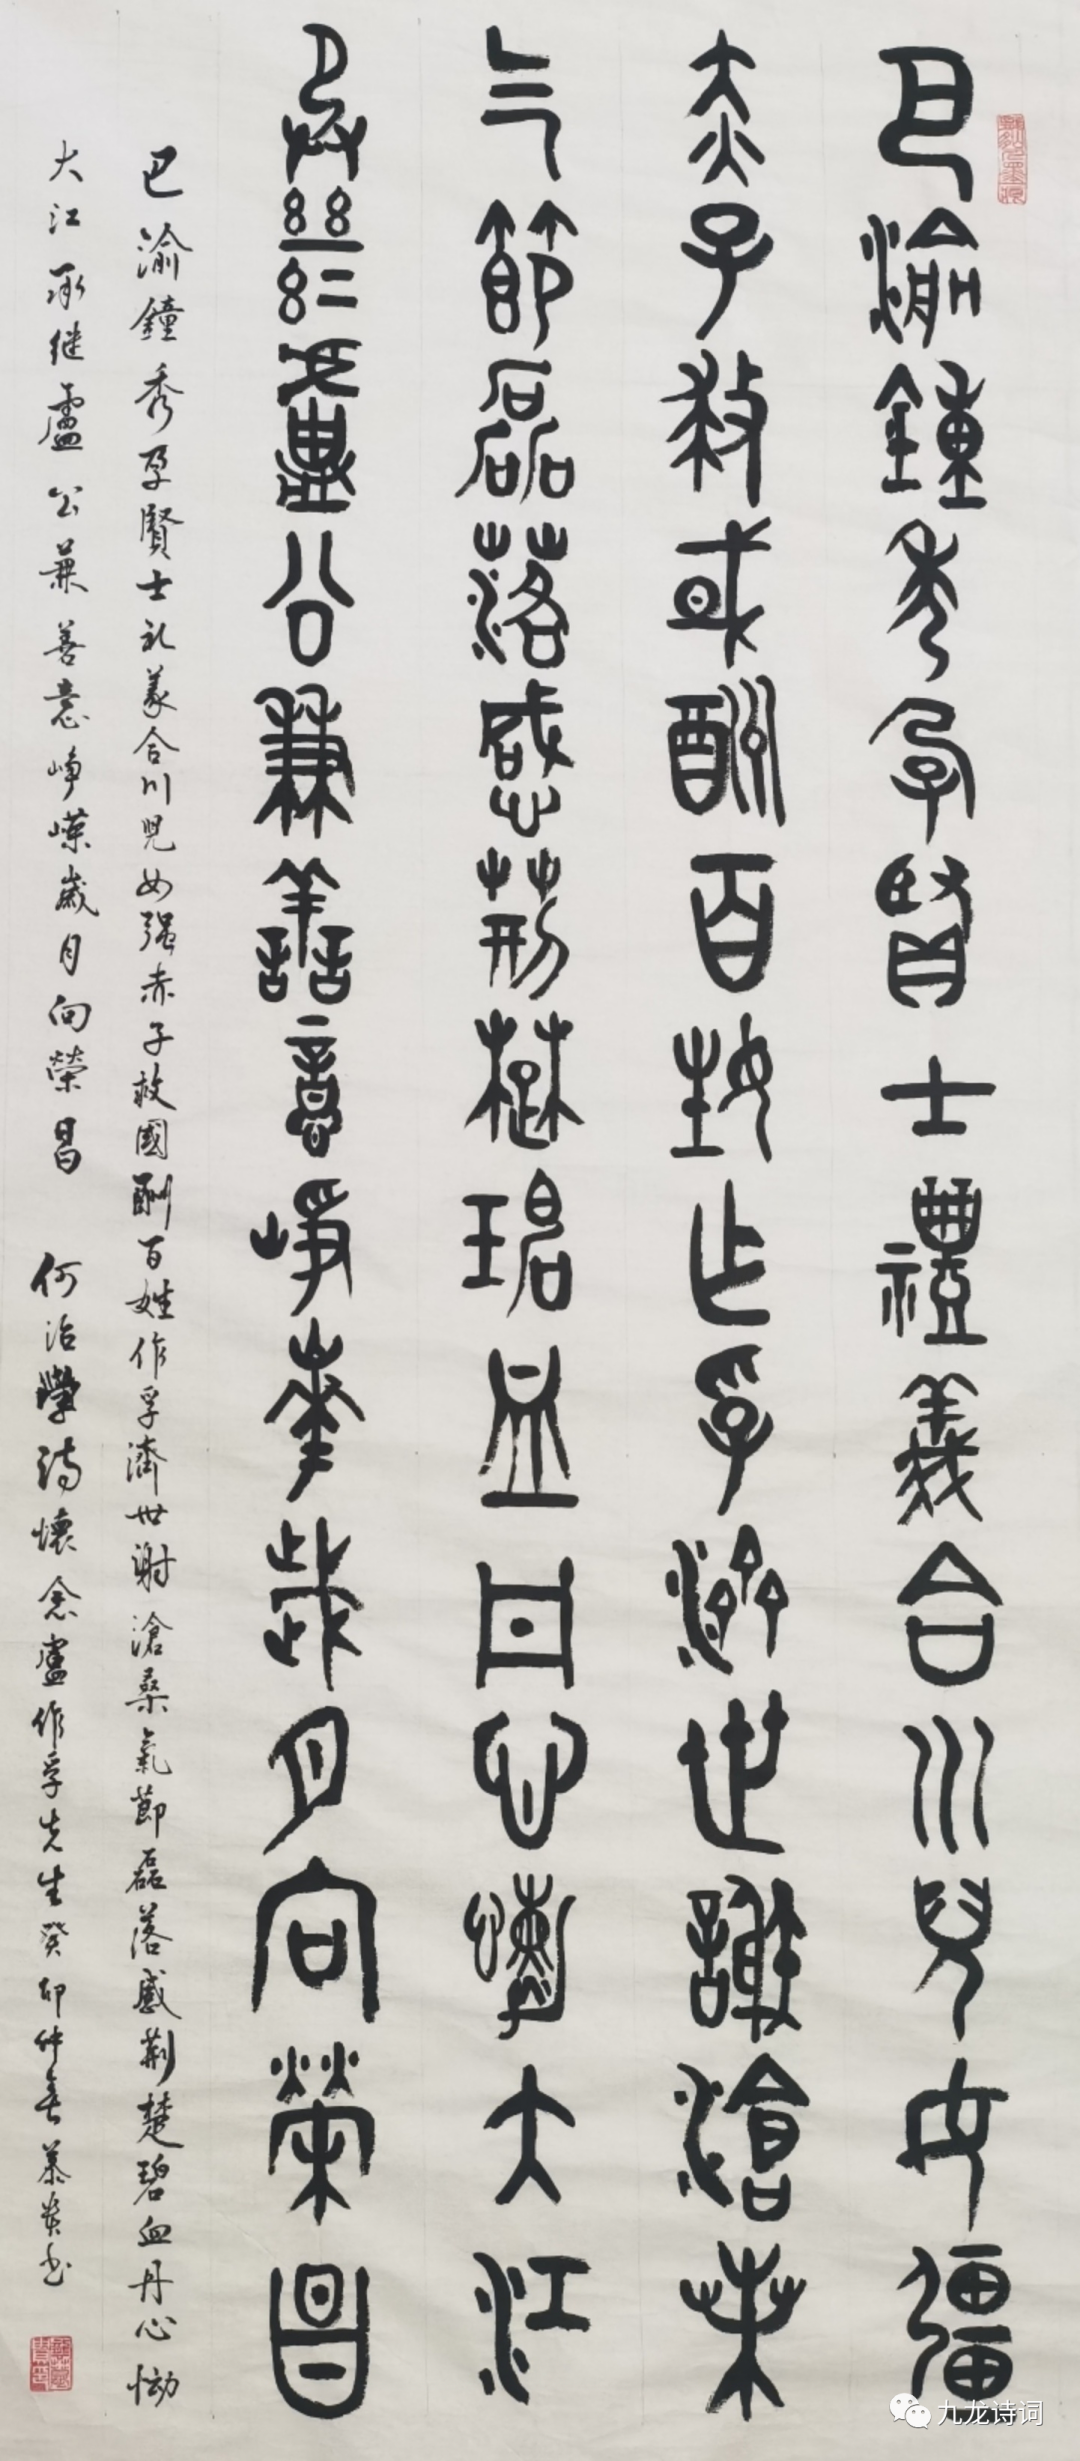 巴渝鐘秀孕賢士禮義合川兒女彊
赤子救或酬百姓作孚濟世謝滄桑
气節磊落感荊楚碧血丹心慟大江
承繼盧公兼善意崢嶸歲月向榮昌
巴渝鐘秀孕賢士礼義合川児女强赤子救國酬百姓作孚濟世謝滄桑氣節磊落感荆楚碧血丹心慟
大江承继盧公兼善意崢嶸歲月向榮昌 何治學詩懷念盧作孚先生癸卯仲春慕炎书
九龙诗词